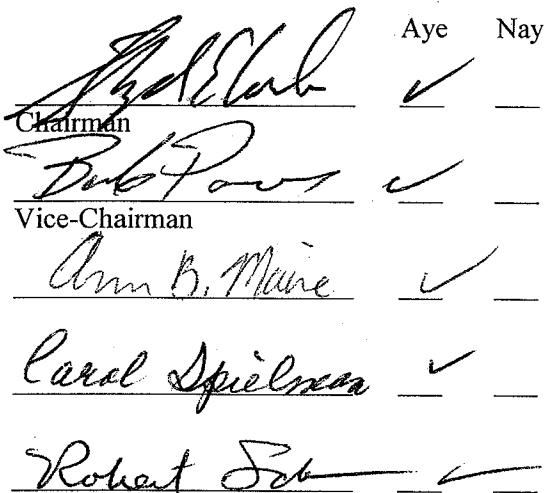 Aye Nay
Chairman
Vice-Chairman
Ann B. Maine
Carol Spielman
Robert